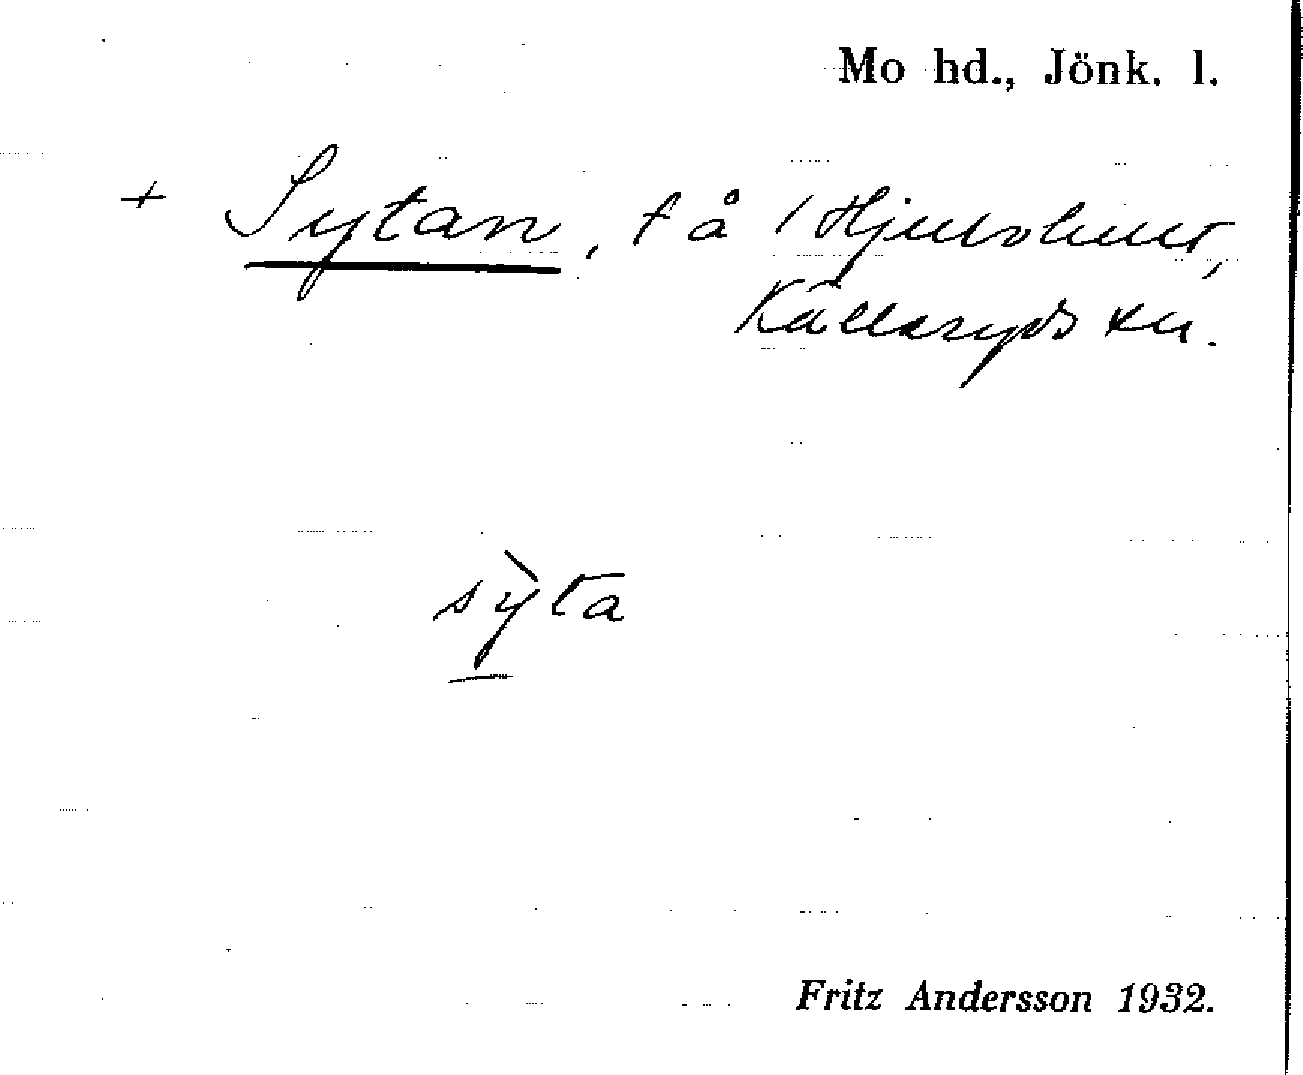 Mo hd., Jönk. l.
+ Sytan, få i Hjulshult,
Källeryds sn.
sỳta
Fritz Andersson 1932.